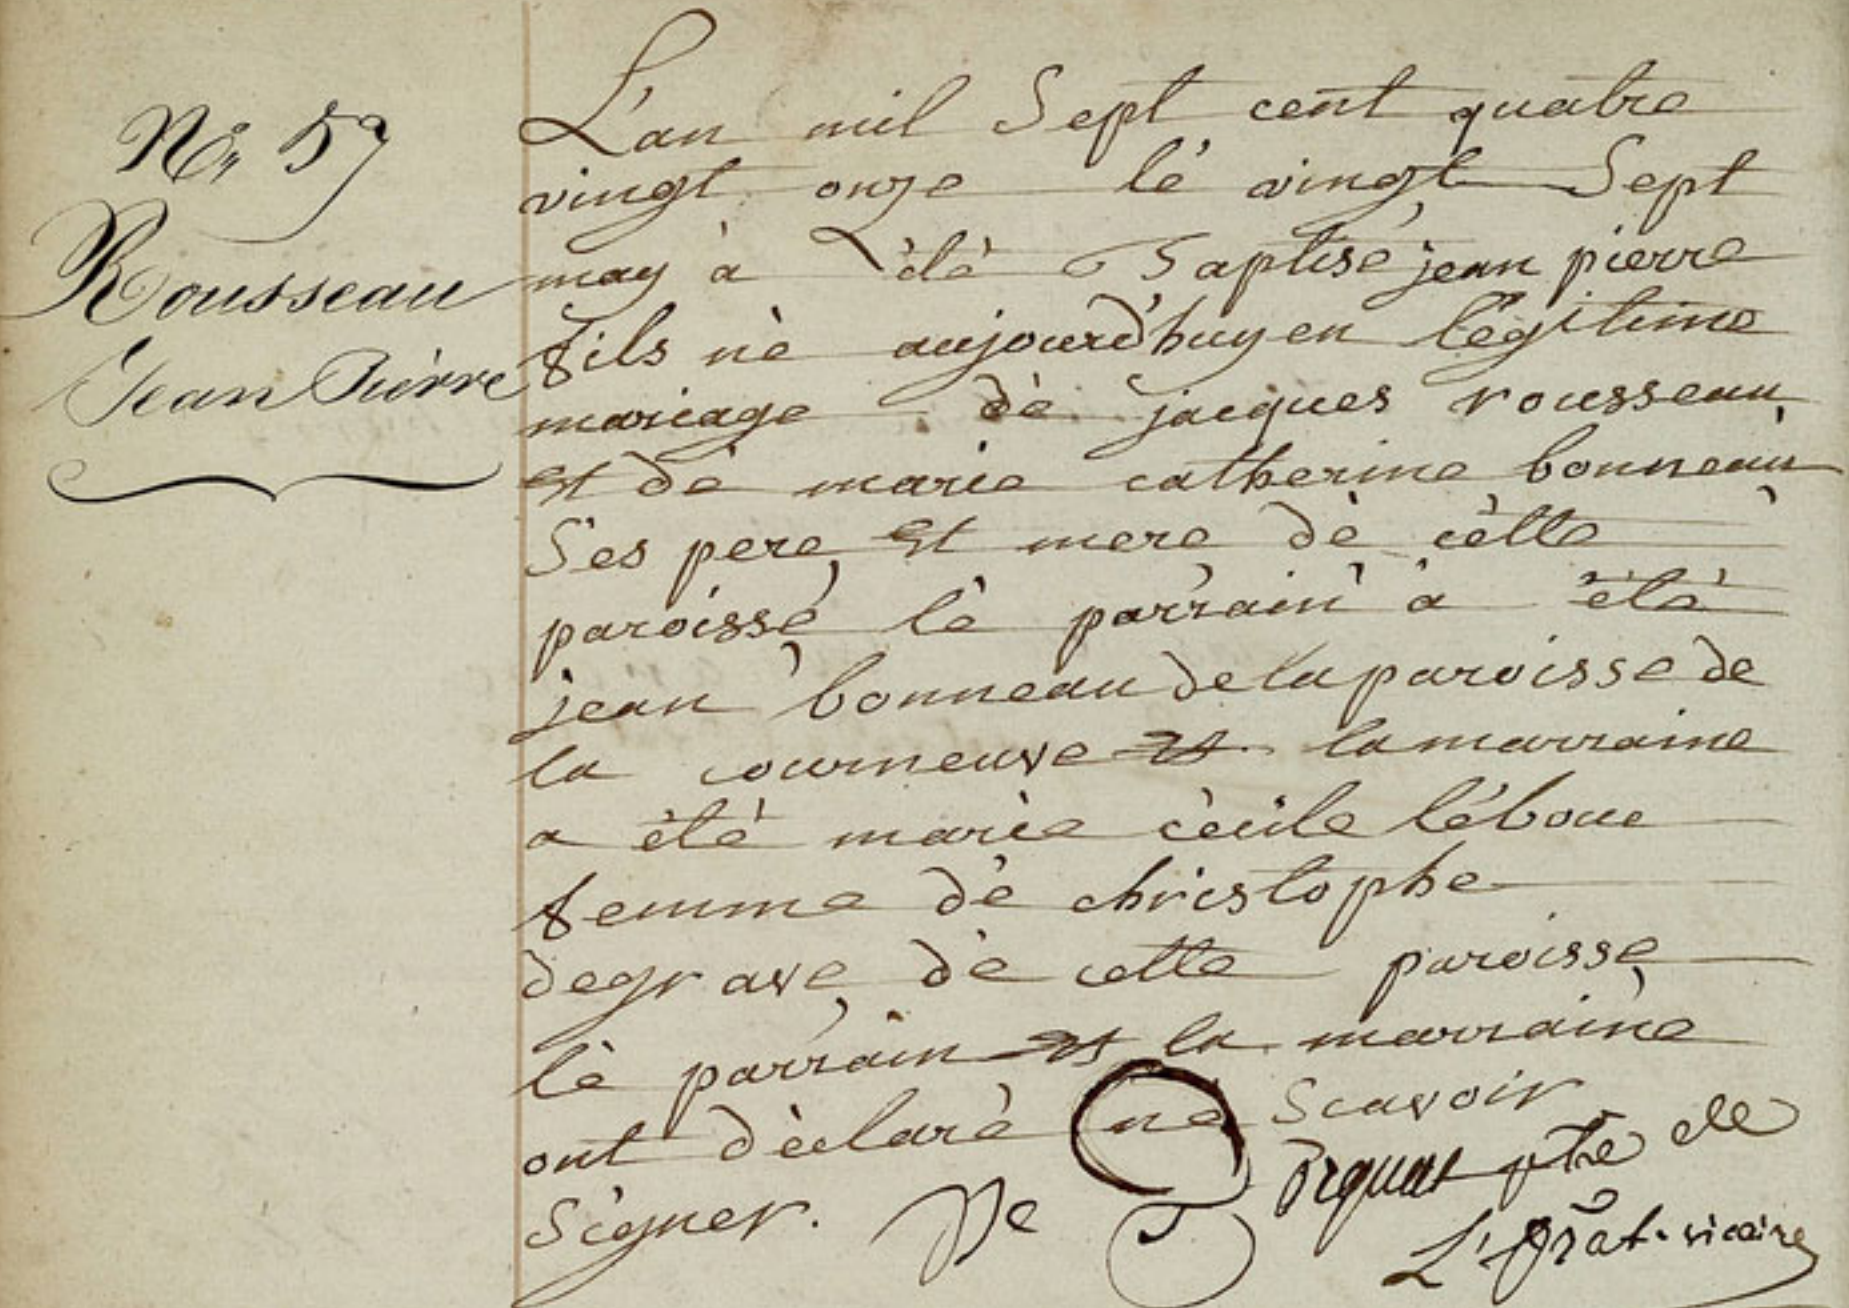 No. 57
Rousseau
Jean Pierre
L'an mil Sept cent quatre
vingt onze lé vingt Sept
may à èté Baptisé jean pierre
fils né aujourd'huy en légitime
mariage dè jacques rousseau
et dé marie catherine bonneau
Ses pere et mere dè cètte
paroisse lè parrain à èté
jean bonneau de la paroisse de
la courneuve et la marraine
a été marie cècile lèboue
femme dè christophe
degrave dè cette paroisse
lè parrain et la marraine
ont dèclarè nè Scavoir
Signer. De pte de
L'Orat. vicaire